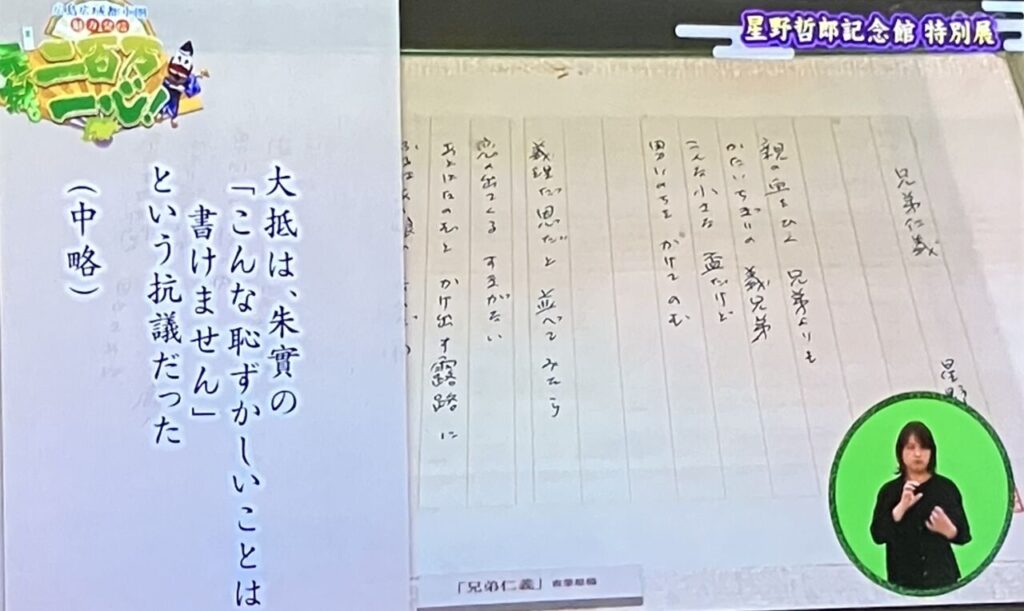 広島広域都市圏
魅力発信
二百万
一心!
星野哲郎記念館 特別展
兄弟仁義
星野
親の血をひく 兄弟よりも
かたいちぎりの 義兄弟
こんな小さな 盃だけど
男いのちを かけてのむ
義理だ恩だと 並べてみたら
恋の出てくる すきがない
あとはたのむと かけ出す露路に
大抵は、朱實の
「こんな恥ずかしいことは
書けません」
という抗議だった
(中略)
「兄弟仁義」直筆原稿